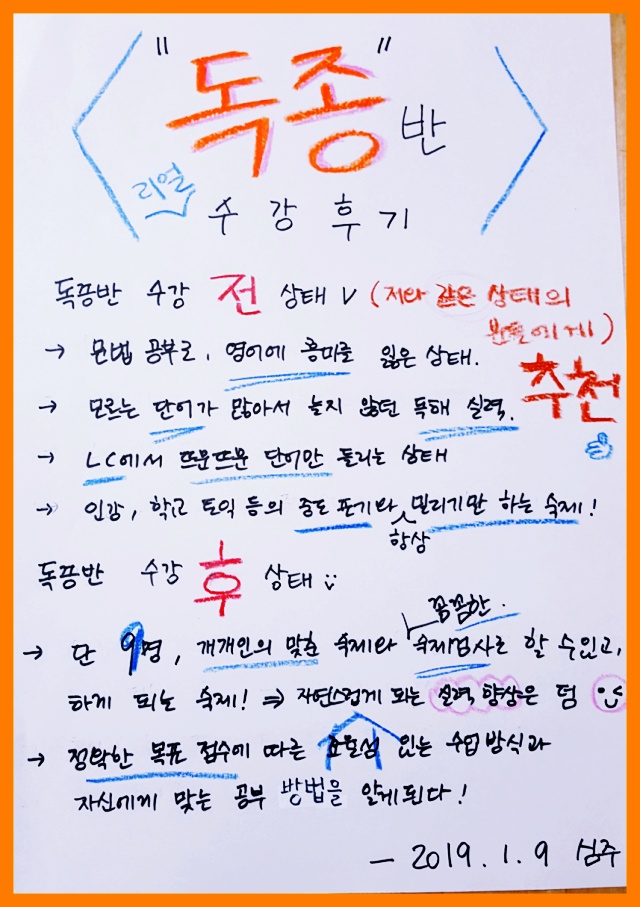 "독종"반
리얼
수강 후기
독종반 수강 전 상태 (저와 같은 상태의
분들에게)
추천
→ 문법 공부로, 영어에 흥미를 잃은 상태.
→ 모르는 단어가 많아서 늘지 않던 독해 실력.
→ LC에서 뜨문뜨문 단어만 들리는 상태
→ 인강, 학교 토익 등의 중도 포기와 항상 밀리기만 하는 숙제!
독종반 수강 후 상태
→ 단 9명, 개개인의 맞춤 숙제와 꼼꼼한 숙제검사로 할 수 있고,
하게 되는 숙제! ⇒ 자연스럽게 되는 실력 향상은 덤
→ 정확한 목표 점수에 따른 효율성 있는 수업 방식과
자신에게 맞는 공부 방법을 알게된다!
- 2019. 1. 9 심주